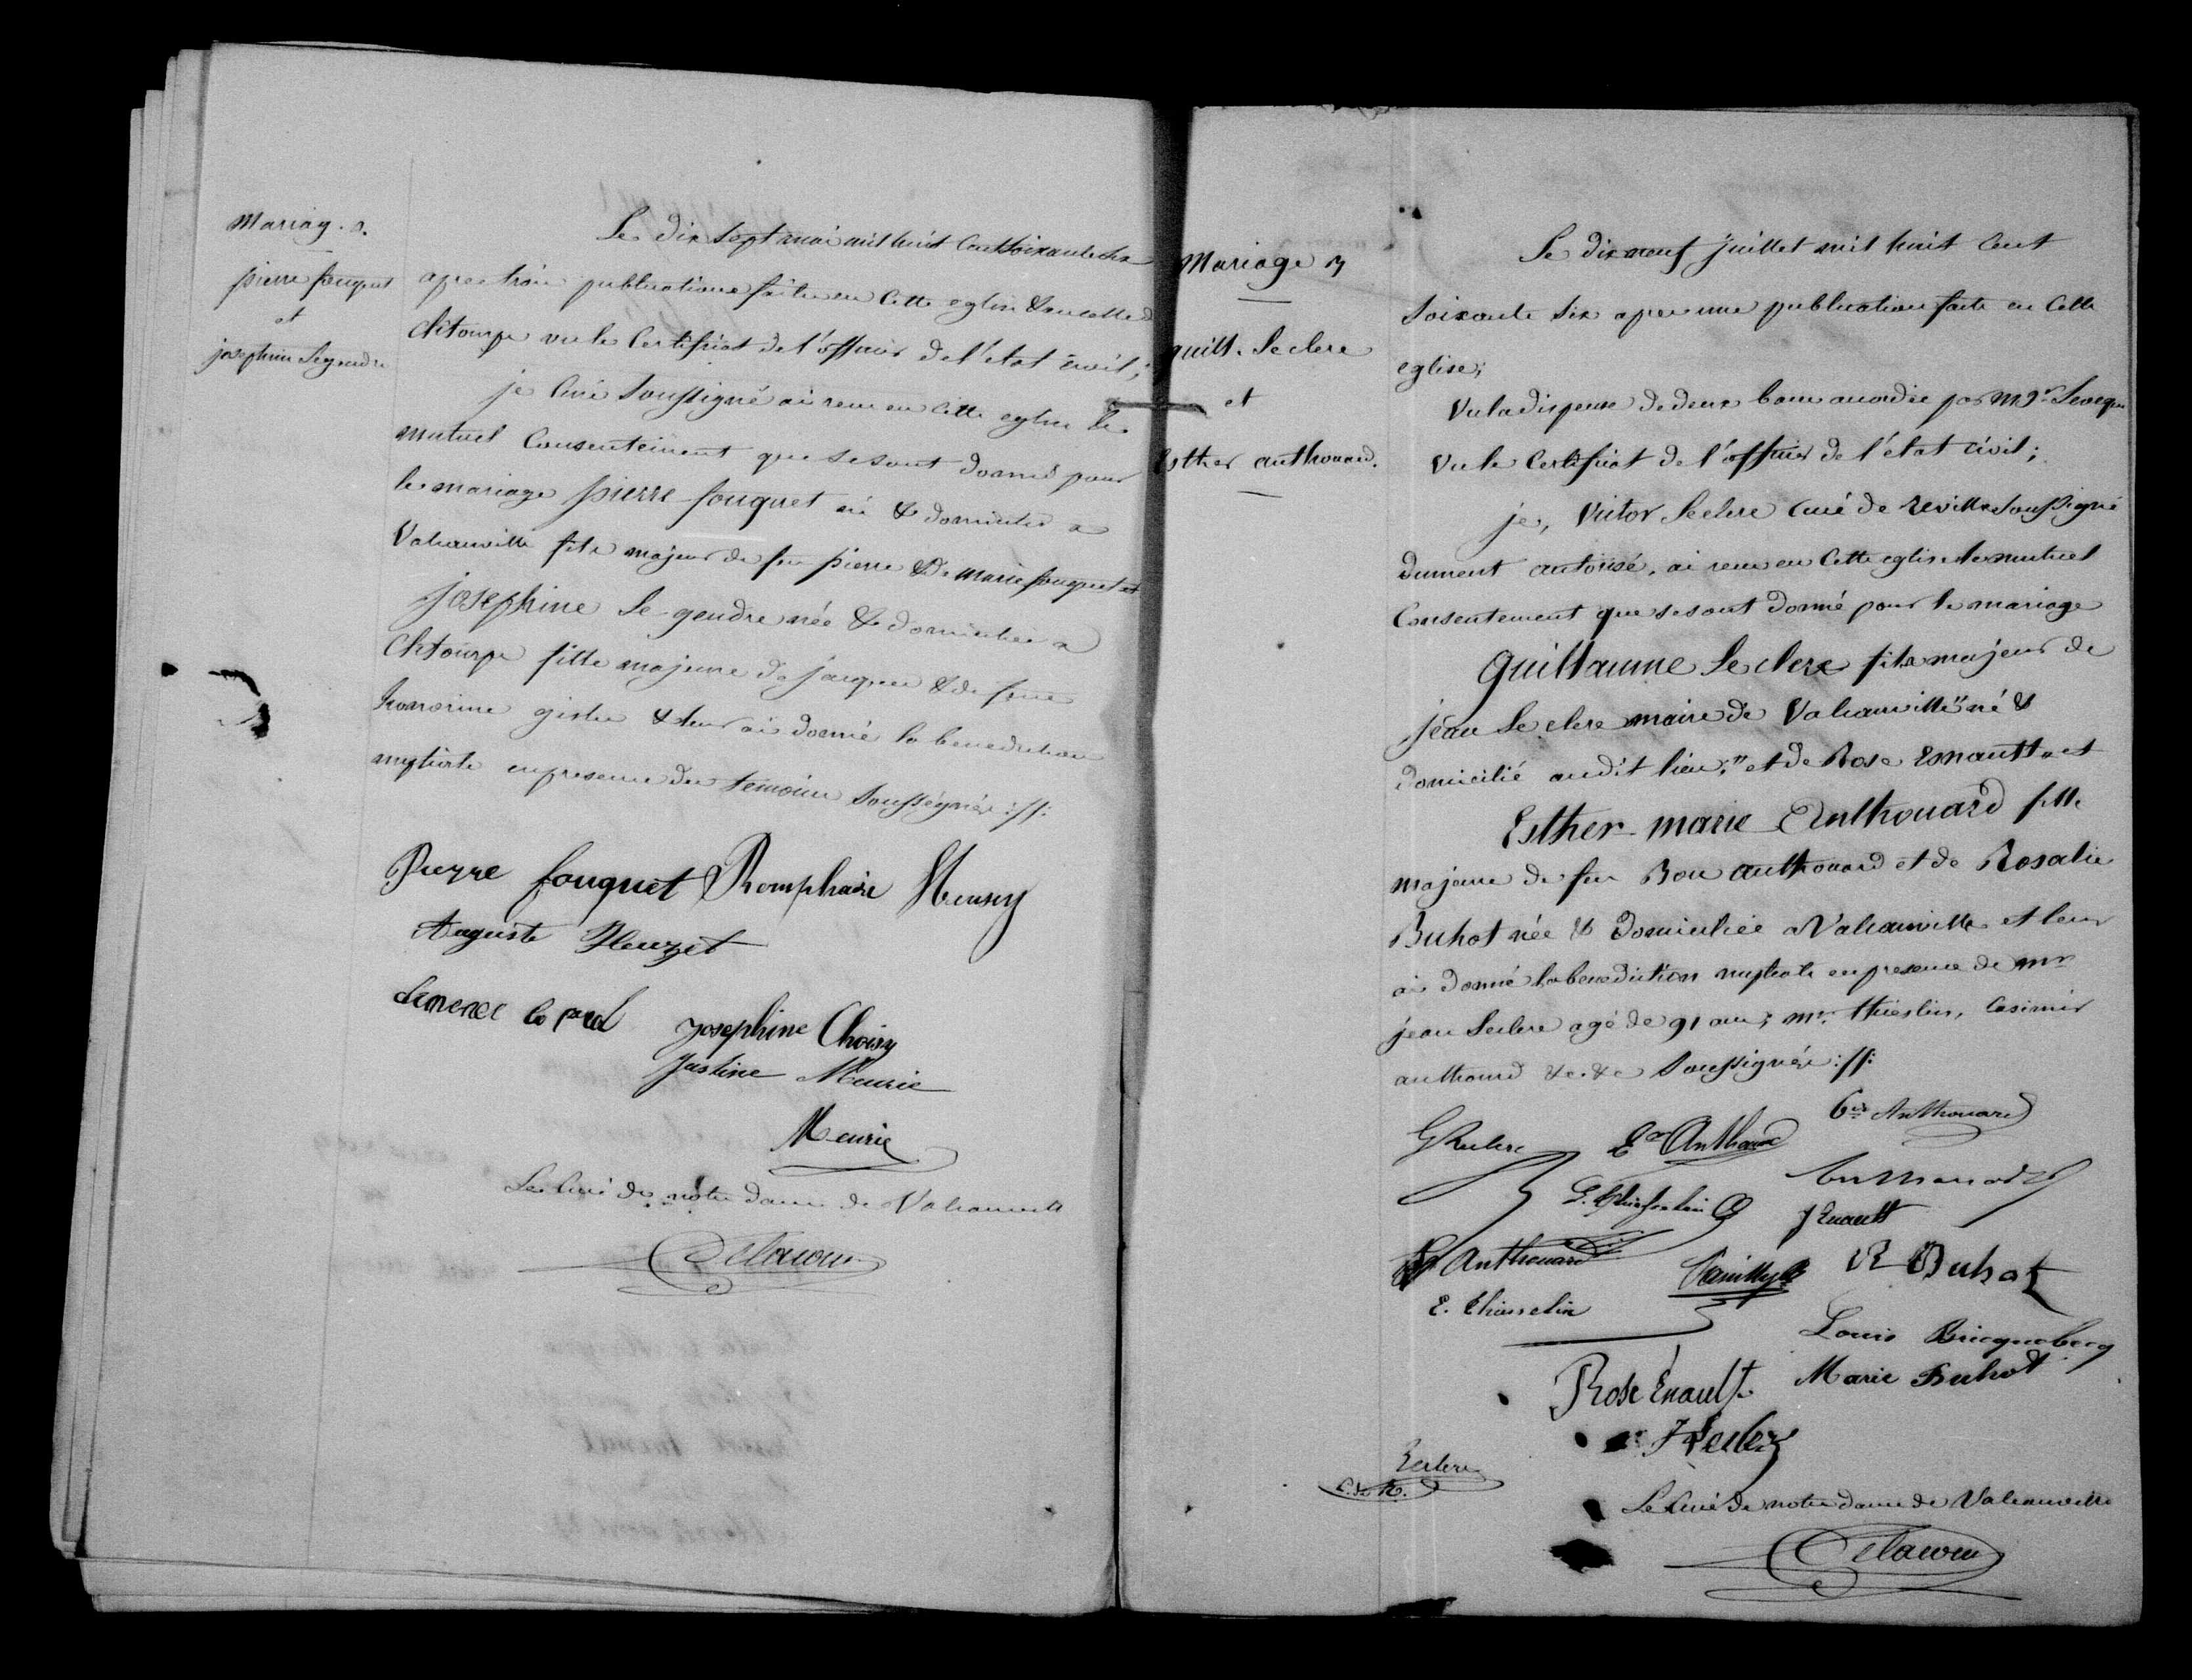 Mariag. 2.
pierre fouquet
et
josephine Legendre
Le dix sept mai mil huit cent soixante six
apres trois publications faites en cette eglise & en celle de
Clitourps vu le certificat de l'officier de l'état civil;
je curé soussigné ai recu en cette eglise le
mutuel consentement que se sont donné pour
le mariage pierre fouquet né & domicilié a
Valcanville fils majeur de feu pierre & de marie fouquet et
josephine Le gendre née & domiciliée a
Clitourps fille majeure de jacques & de feue
honorine & leur ai donné la benediction
nuptiale en presence des temoins soussignés :/:
Pierre fouquet Romphaire Henry
Auguste Heuzet
Josephine Choisy
Justine Meurie
Meurie
Le Curé de notre dame de Valcanville
Delacour
Mariage 3
guill. Leclerc
et
Esther anthouard.
Le dix neuf juillet mil huit cent
soixante six apres une publication faite en cette
eglise;
Vu la dispense de deux bans accordée par Mgr Leveque
Vu le certificat de l'officier de l'état civil;
je, Victor Leclerc curé de Reville soussigné
dument autorisé, ai recu en cette eglise le mutuel
consentement que se sont donné pour le mariage
guillaume Leclerc fils majeur de
jean Leclerc maire de Valcanville né &
domicilié audit lieu; et de Rose Enault et
Esther marie Anthouard fille
majeure de feu Bon anthouard et de Rosalie
Buhot née & domiciliée a Valcanville et leur
ai donné la benediction nuptiale en presence de mr
jean Leclerc agé de 91 ans; mr. thieslin, Casimir
anthouard &c. &c soussignés :/:
G Leclerc Er Anthouard Cir Anthouard
Anthouard
J Enault
Anthouard R Buhot
E. thiesselin
Louis Bricquebecq
Rose Enault Marie Buhot
J Leclerc
Leclerc
c. de R.
Le Curé de notre dame de Valcanville
Delacour